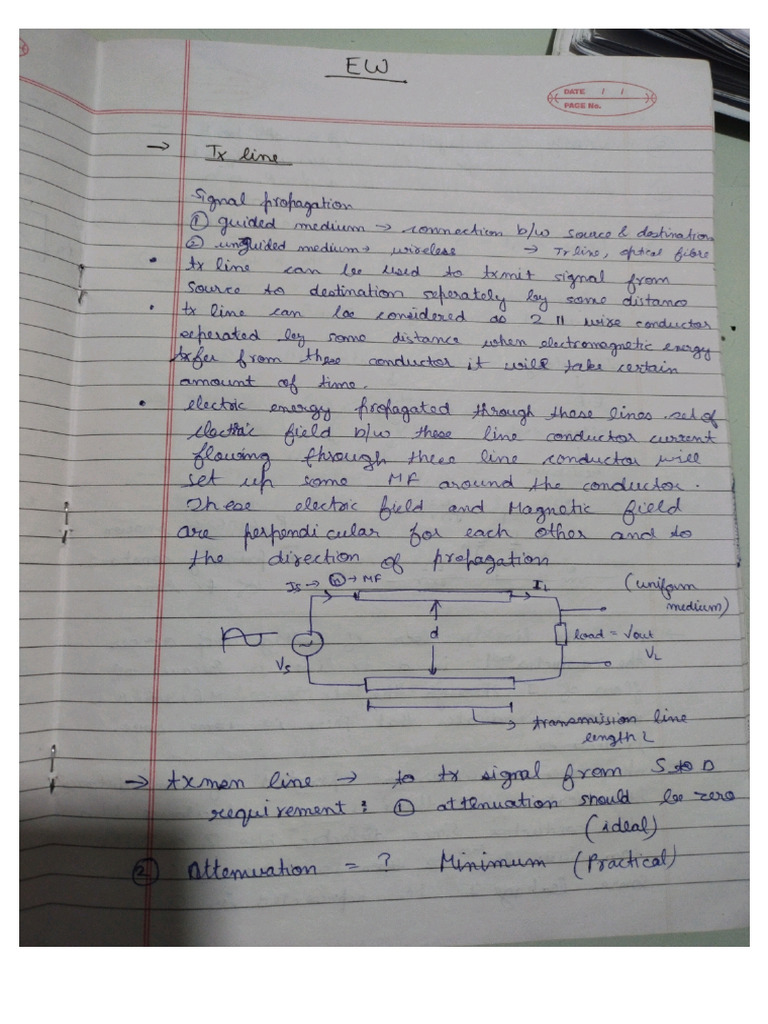 EW
DATE / /
PAGE No.
→ Tx line
Signal propagation
① guided medium → connection b/w source & destination
② unguided medium → wireless → Tr line, optical fibre
• tx line can be used to txmit signal from
source to destination seperately by some distance
• tx line can be considered as 2 || wire conductor
seperated by some distance when electromagnetic energy
txfer from these conductor it will take certain
amount of time.
• electric energy propagated through these lines set of
electric field b/w these line conductor current
flowing through these line conductor will
set up some MF around the conductor.
These electric field and Magnetic field
are perpendicular for each other and to
the direction of propagation
Is → → MF IL (uniform
medium)
d load = Vout
Vs VL
transmission line
length L
→ txmsn line → to tx signal from S to D
requirement: ① attenuation should be zero
(ideal)
② Attenuation = ? Minimum (Practical)